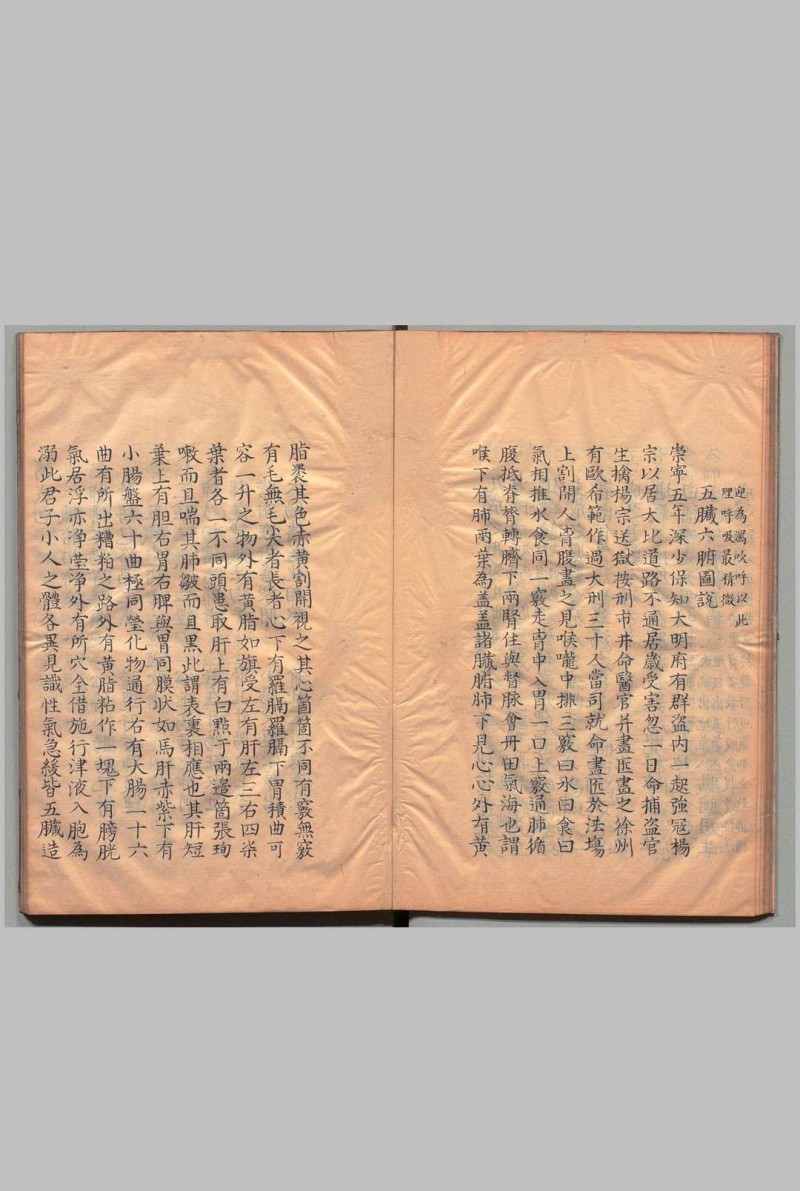 迎為瀉吹呼以此
理呼吸最精微
五臟六腑圖說
崇寧五年深少保知大明府有群盜內一起強冦楊
宗以居大比道路不通居歲受害忽一日命捕盜官
生擒楊宗送獄按刑市井命醫官并畫匠畫之徐州
有歐希範作過大刑三十人當司就命畫匠於法塲
上割開人胷腹畫之見喉嚨中排三竅曰水曰食曰
氣相推水食同一竅走胷中入胃一口上竅通肺循
腹抵脊膂轉臍下兩腎任與督脉會丹田氣海也謂
喉下有肺兩葉為盖盖諸臟腑肺下見心心外有黃
脂褁其色赤黃割開視之其心箇箇不同有竅無竅
有毛無毛尖者長者心下有羅膈羅膈下胃積曲可
容一升之物外有黃脂如旗受左有肝左三右四柒
葉者各一不同頭患取肝上有白㸃于兩邊箇張珣
嗽而且喘其肺皺而且黑此謂表裏相應也其肝短
葉上有胆右胃右脾與胃同膜狀如馬肝赤紫下有
小腸盤六十曲極同瑩化物通行右有大腸一十六
曲有所出糟粕之路外有黃脂粘作一塊下有膀胱
氣居浮亦淨瑩淨外有所穴全借施行津液入胞為
溺此君子小人之體各異見識性氣急緩皆五臟造